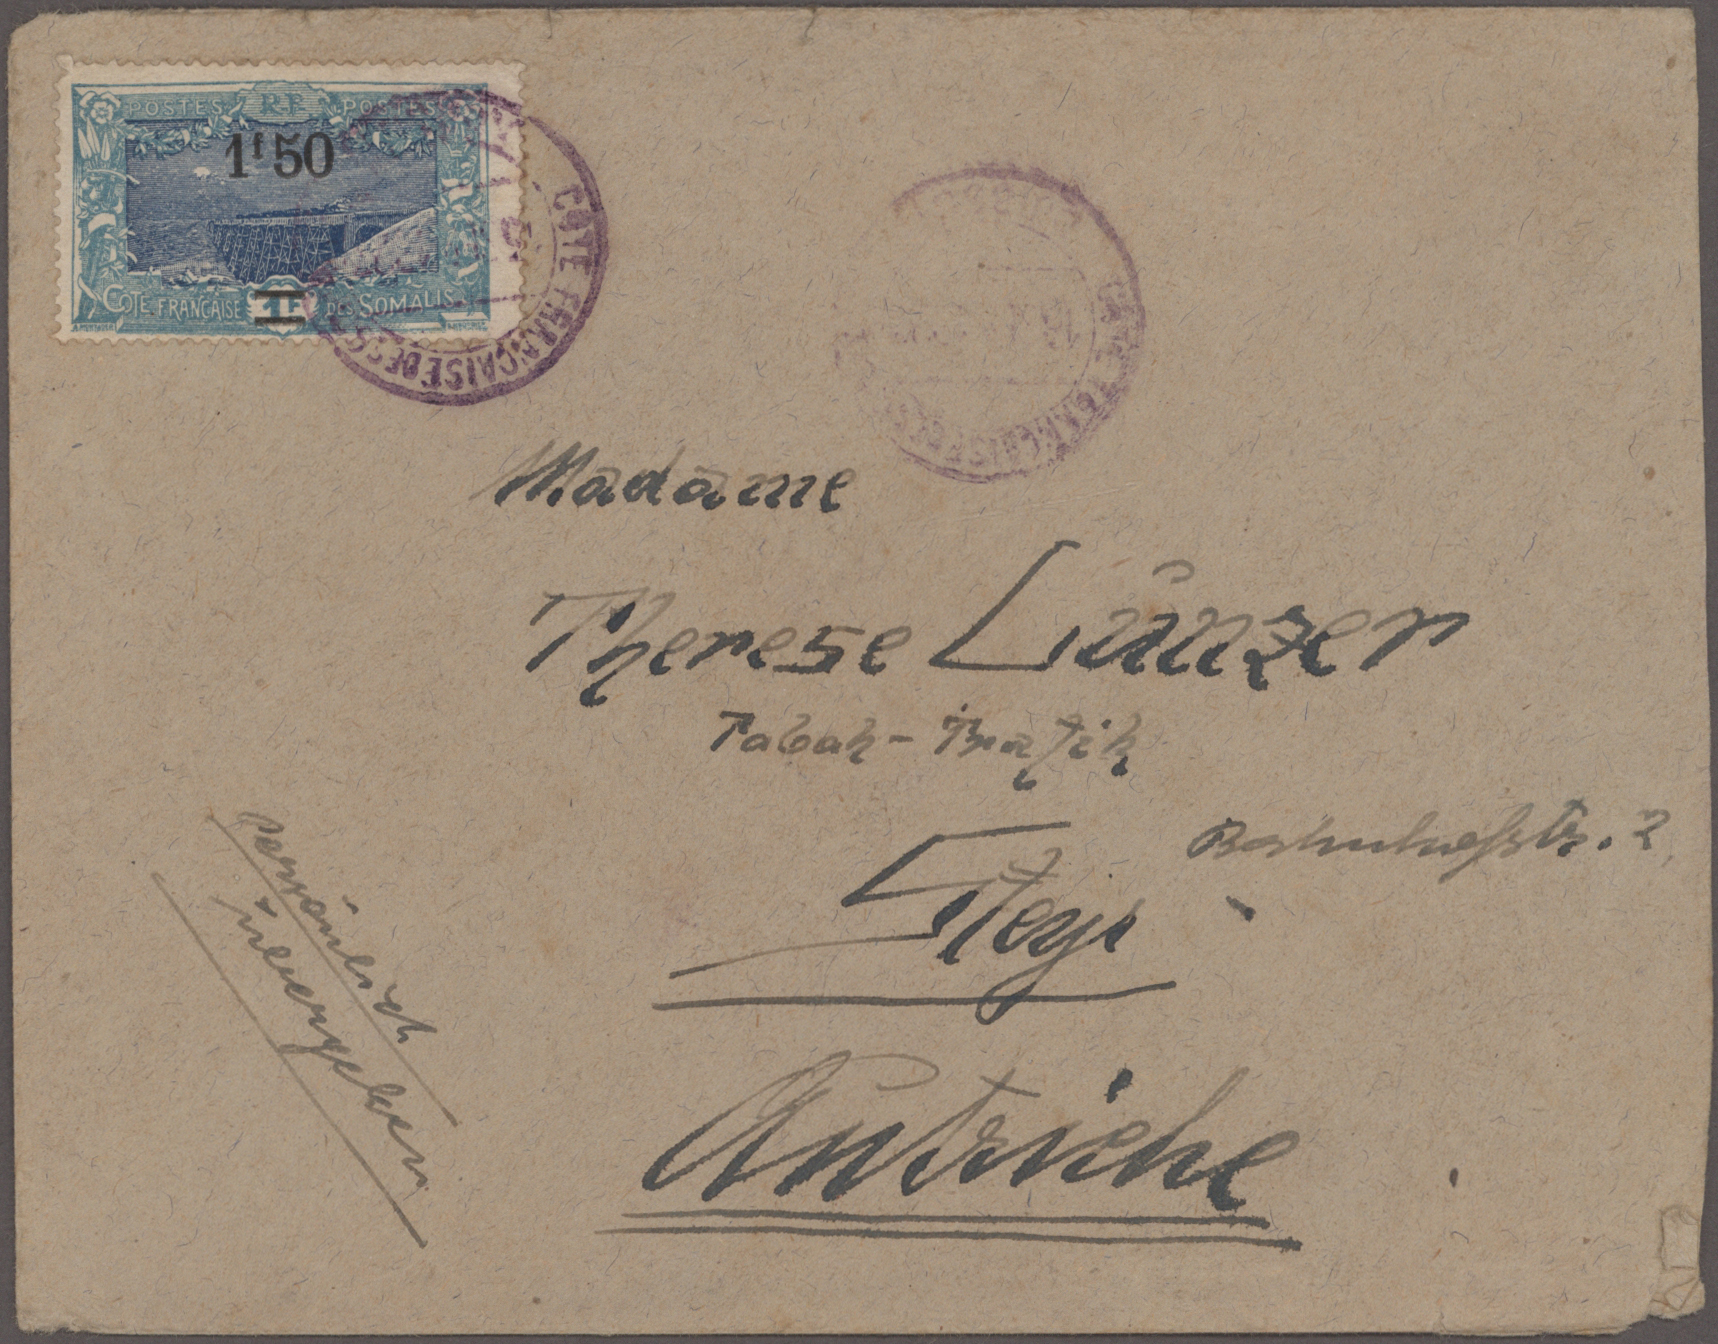 POSTES RF POSTES
1f50
COTE FRANÇAISE 1F DES SOMALIS
COTE FRANÇAISE DES S
COTE FRANÇAISE DES
Madame
Therese Lünzer
Tabak-Trafik
Bahnhofstr. 2
Steyr
Autriche
persönlich
übergeben